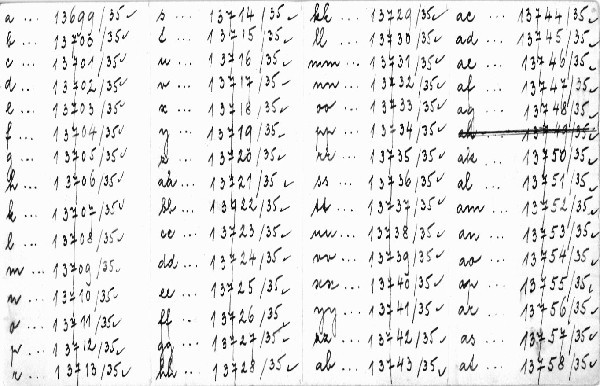 a ... 13699/35
b ... 13700/35
c ... 13701/35
d ... 13702/35
e ... 13703/35
f ... 13704/35
g ... 13705/35
h ... 13706/35
k ... 13707/35
l ... 13708/35
m ... 13709/35
n ... 13710/35
o ... 13711/35
p ... 13712/35
r ... 13713/35
s ... 13714/35
t ... 13715/35
u ... 13716/35
v ... 13717/35
x ... 13718/35
y ... 13719/35
z ... 13720/35
aa ... 13721/35
bb ... 13722/35
cc ... 13723/35
dd ... 13724/35
ee ... 13725/35
ff ... 13726/35
gg ... 13727/35
hh ... 13728/35
kk ... 13729/35
ll ... 13730/35
mm ... 13731/35
nn ... 13732/35
oo ... 13733/35
pp ... 13734/35
rr ... 13735/35
ss ... 13736/35
tt ... 13737/35
uu ... 13738/35
vv ... 13739/35
xx ... 13740/35
yy ... 13741/35
zz ... 13742/35
ab ... 13743/35
ac ... 13744/35
ad ... 13745/35
ae ... 13746/35
af ... 13747/35
ag ... 13748/35
ah ... 13749/35
ak ... 13750/35
al ... 13751/35
am ... 13752/35
an ... 13753/35
ao ... 13754/35
ap ... 13755/35
ar ... 13756/35
as ... 13757/35
at ... 13758/35